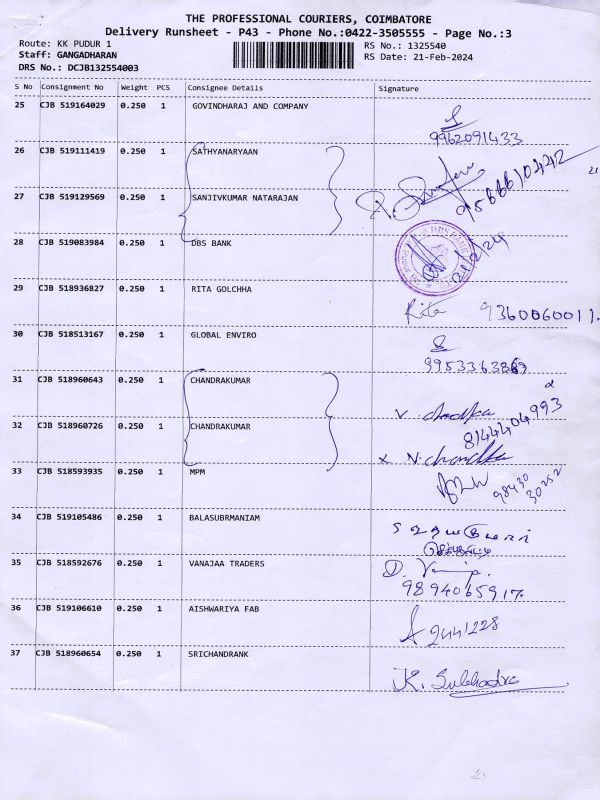 THE PROFESSIONAL COURIERS, COIMBATORE
Delivery Runsheet - P43 - Phone No.:0422-3505555 - Page No.:3
Route: KK PUDUR 1 RS No.: 1325540
Staff: GANGADHARAN RS Date: 21-Feb-2024
DRS No.: DCJB132554003
S No Consignment No Weight PCS Consignee Details Signature
25 CJB 519164029 0.250 1 GOVINDHARAJ AND COMPANY
9962091433
26 CJB 519111419 0.250 1 SATHYANARYAAN
9566610442
27 CJB 519129569 0.250 1 SANJIVKUMAR NATARAJAN
28 CJB 519083984 0.250 1 DBS BANK
21/2/24
29 CJB 518936827 0.250 1 RITA GOLCHHA
Rita 9360060011.
30 CJB 518513167 0.250 1 GLOBAL ENVIRO
31 CJB 518960643 0.250 1 CHANDRAKUMAR
8144404993
32 CJB 518960726 0.250 1 CHANDRAKUMAR
33 CJB 518593935 0.250 1 MPM
98430
30252
34 CJB 519105486 0.250 1 BALASUBRMANIAM
35 CJB 518592676 0.250 1 VANAJAA TRADERS
9894065917.
36 CJB 519106610 0.250 1 AISHWARIYA FAB
2441228
37 CJB 518960654 0.250 1 SRICHANDRANK
K. Subhadra